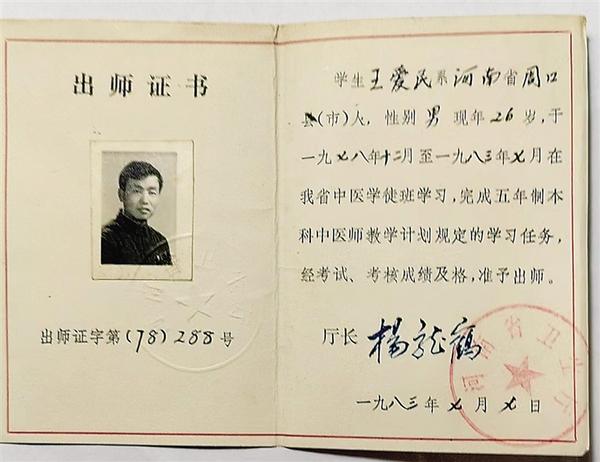 出师证书
出师证字第(78)288号
学生王爱民系河南省周口
县(市)人，性别男 现年26岁，于
一九七八年十二月至一九八三年七月在
我省中医学徒班学习，完成五年制本
科中医师教学计划规定的学习任务，
经考试、考核成绩及格，准予出师。
厅长 杨龙鹤
河南省卫生厅
一九八三年七月七日